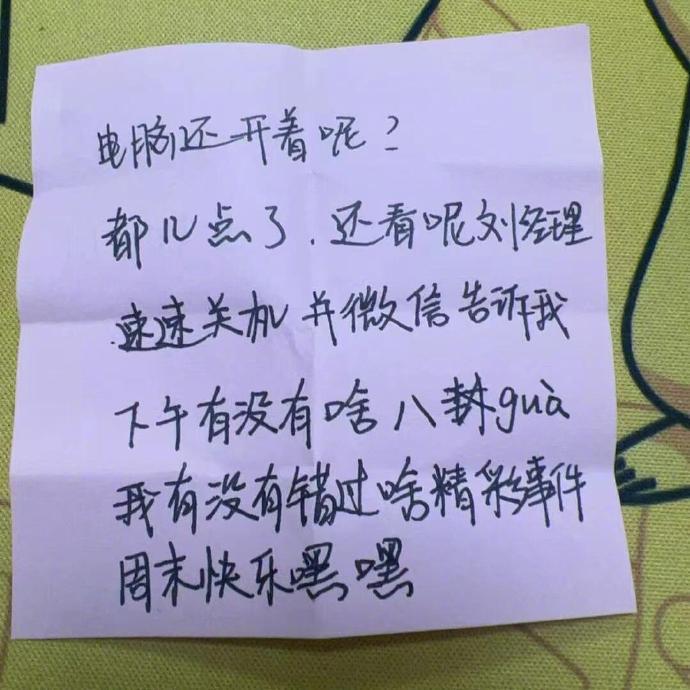 电脑还开着呢？
都几点了.还看呢刘经理
速速关机并微信告诉我
下午有没有啥八卦guà
我有没有错过啥精彩事件
周末快乐嘿嘿